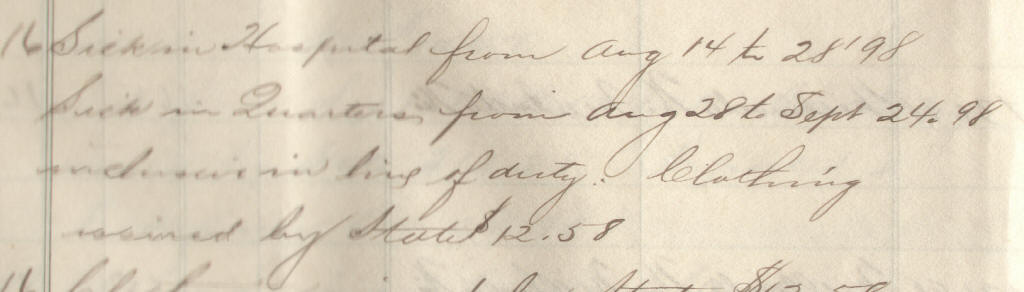 16 Sick in Hospital from Aug 14 to 28 '98
Sick in Quarters from Aug 28 to Sept 24. 98
inclusive in line of duty. Clothing
issued by State $12.58
16 State $12.58